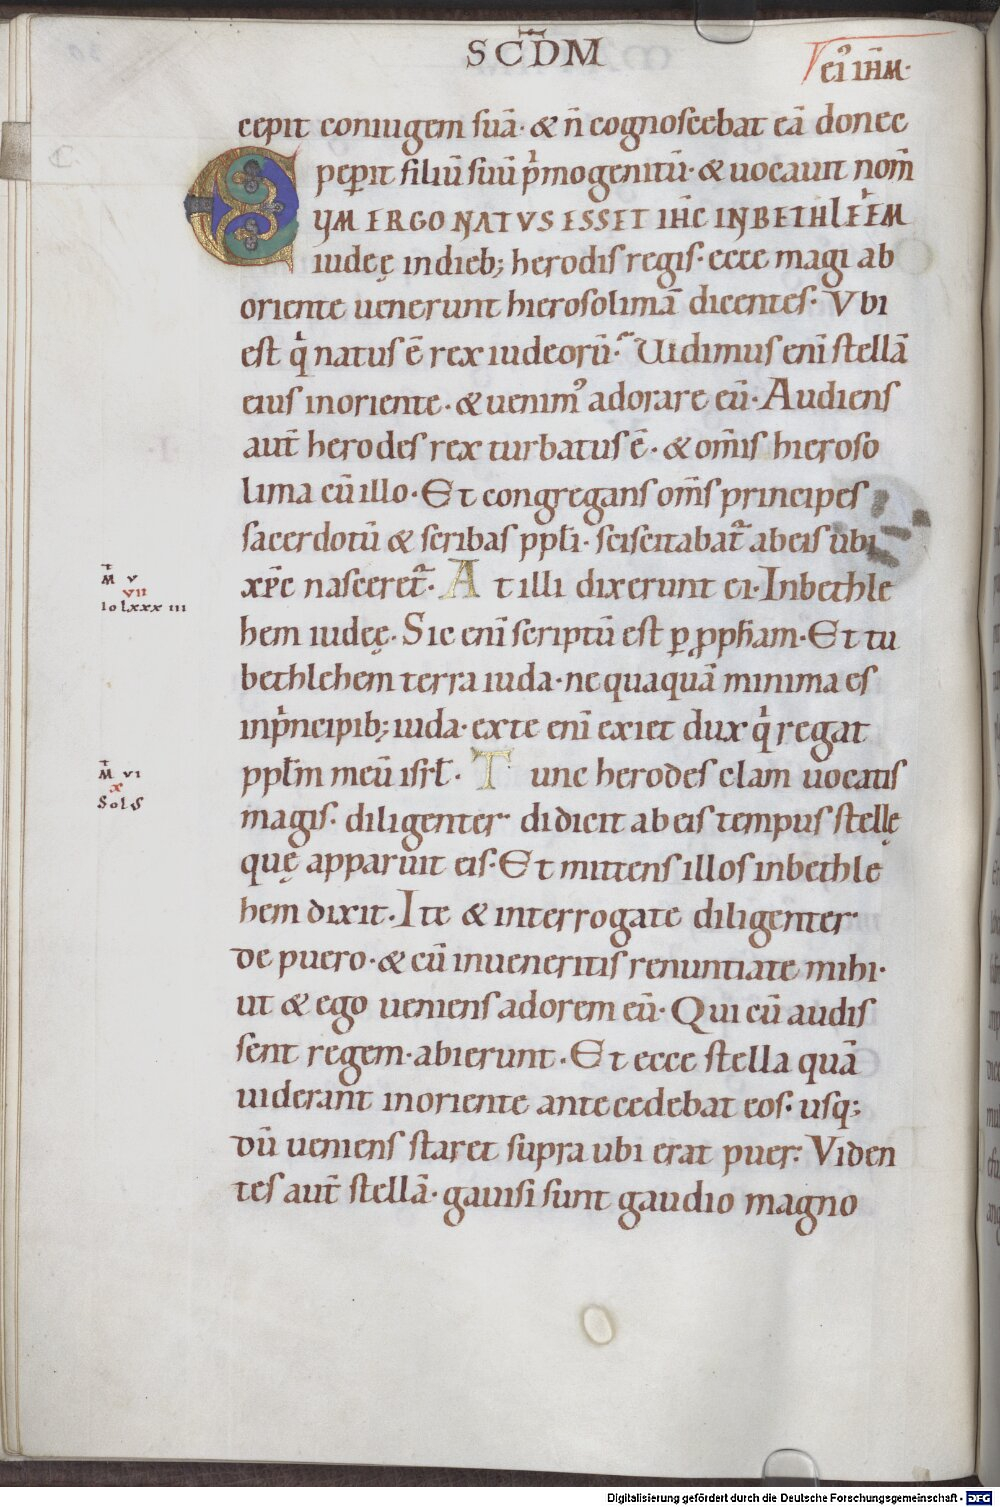 SCDM
ei᾽ ihm̅·
cepit coniugem suā· & n̄ cognoscebat eā donec
peperit filiū suū pⁱmogenitū· & uocauit nom̄
QVM ERGO NATVS ESSET IHC INBETHLEEM
iudeę indieb; herodis regis· ecce magi ab
oriente uenerunt hierosolimā dicentes· Vbi
est qⁱ natus ē rex iudeorū· Uidimus enī stellā
eius inoriente· & uenim᾽ adorare eū· Audiens
aut̄ herodes rex turbatus ē· & om̄is hieroso
lima cū illo· Et congregans om̄s principes
sacerdotū & scribas ppl̄i· sciscitabat᷑ ab eis ubi
xp̄c nasceret᷑· At illi dixerunt ei· Inbethle
hem iudeę· Sic enī scriptū est ꝑ ꝓph̄am· Et tu
bethlehem terra iuda· nequaquā minima es
inpⁱncipib; iuda· exte enī exiet dux qⁱ regat
ppl̄m meū isrl̄· Tunc herodes clam uocatis
magis· diligenter didicit ab eis tempus stellę
quę apparuit eis· Et mittens illos inbethle
hem dixit· Ite & interrogate diligenter
de puero· & cū inueneritis renuntiate mihi·
ut & ego ueniens adorem eū· Qui cū audis
sent regem· abierunt· Et ecce stella quā
uiderant inoriente antecedebat eos· usq;
dū ueniens staret supra ubi erat puer· Viden
tes aut̄ stellā· gauisi sunt gaudio magno
M v
vii
Io lxxxiii
M vi
x
Solꝰ
Digitalisierung gefördert durch die Deutsche Forschungsgemeinschaft - DFG